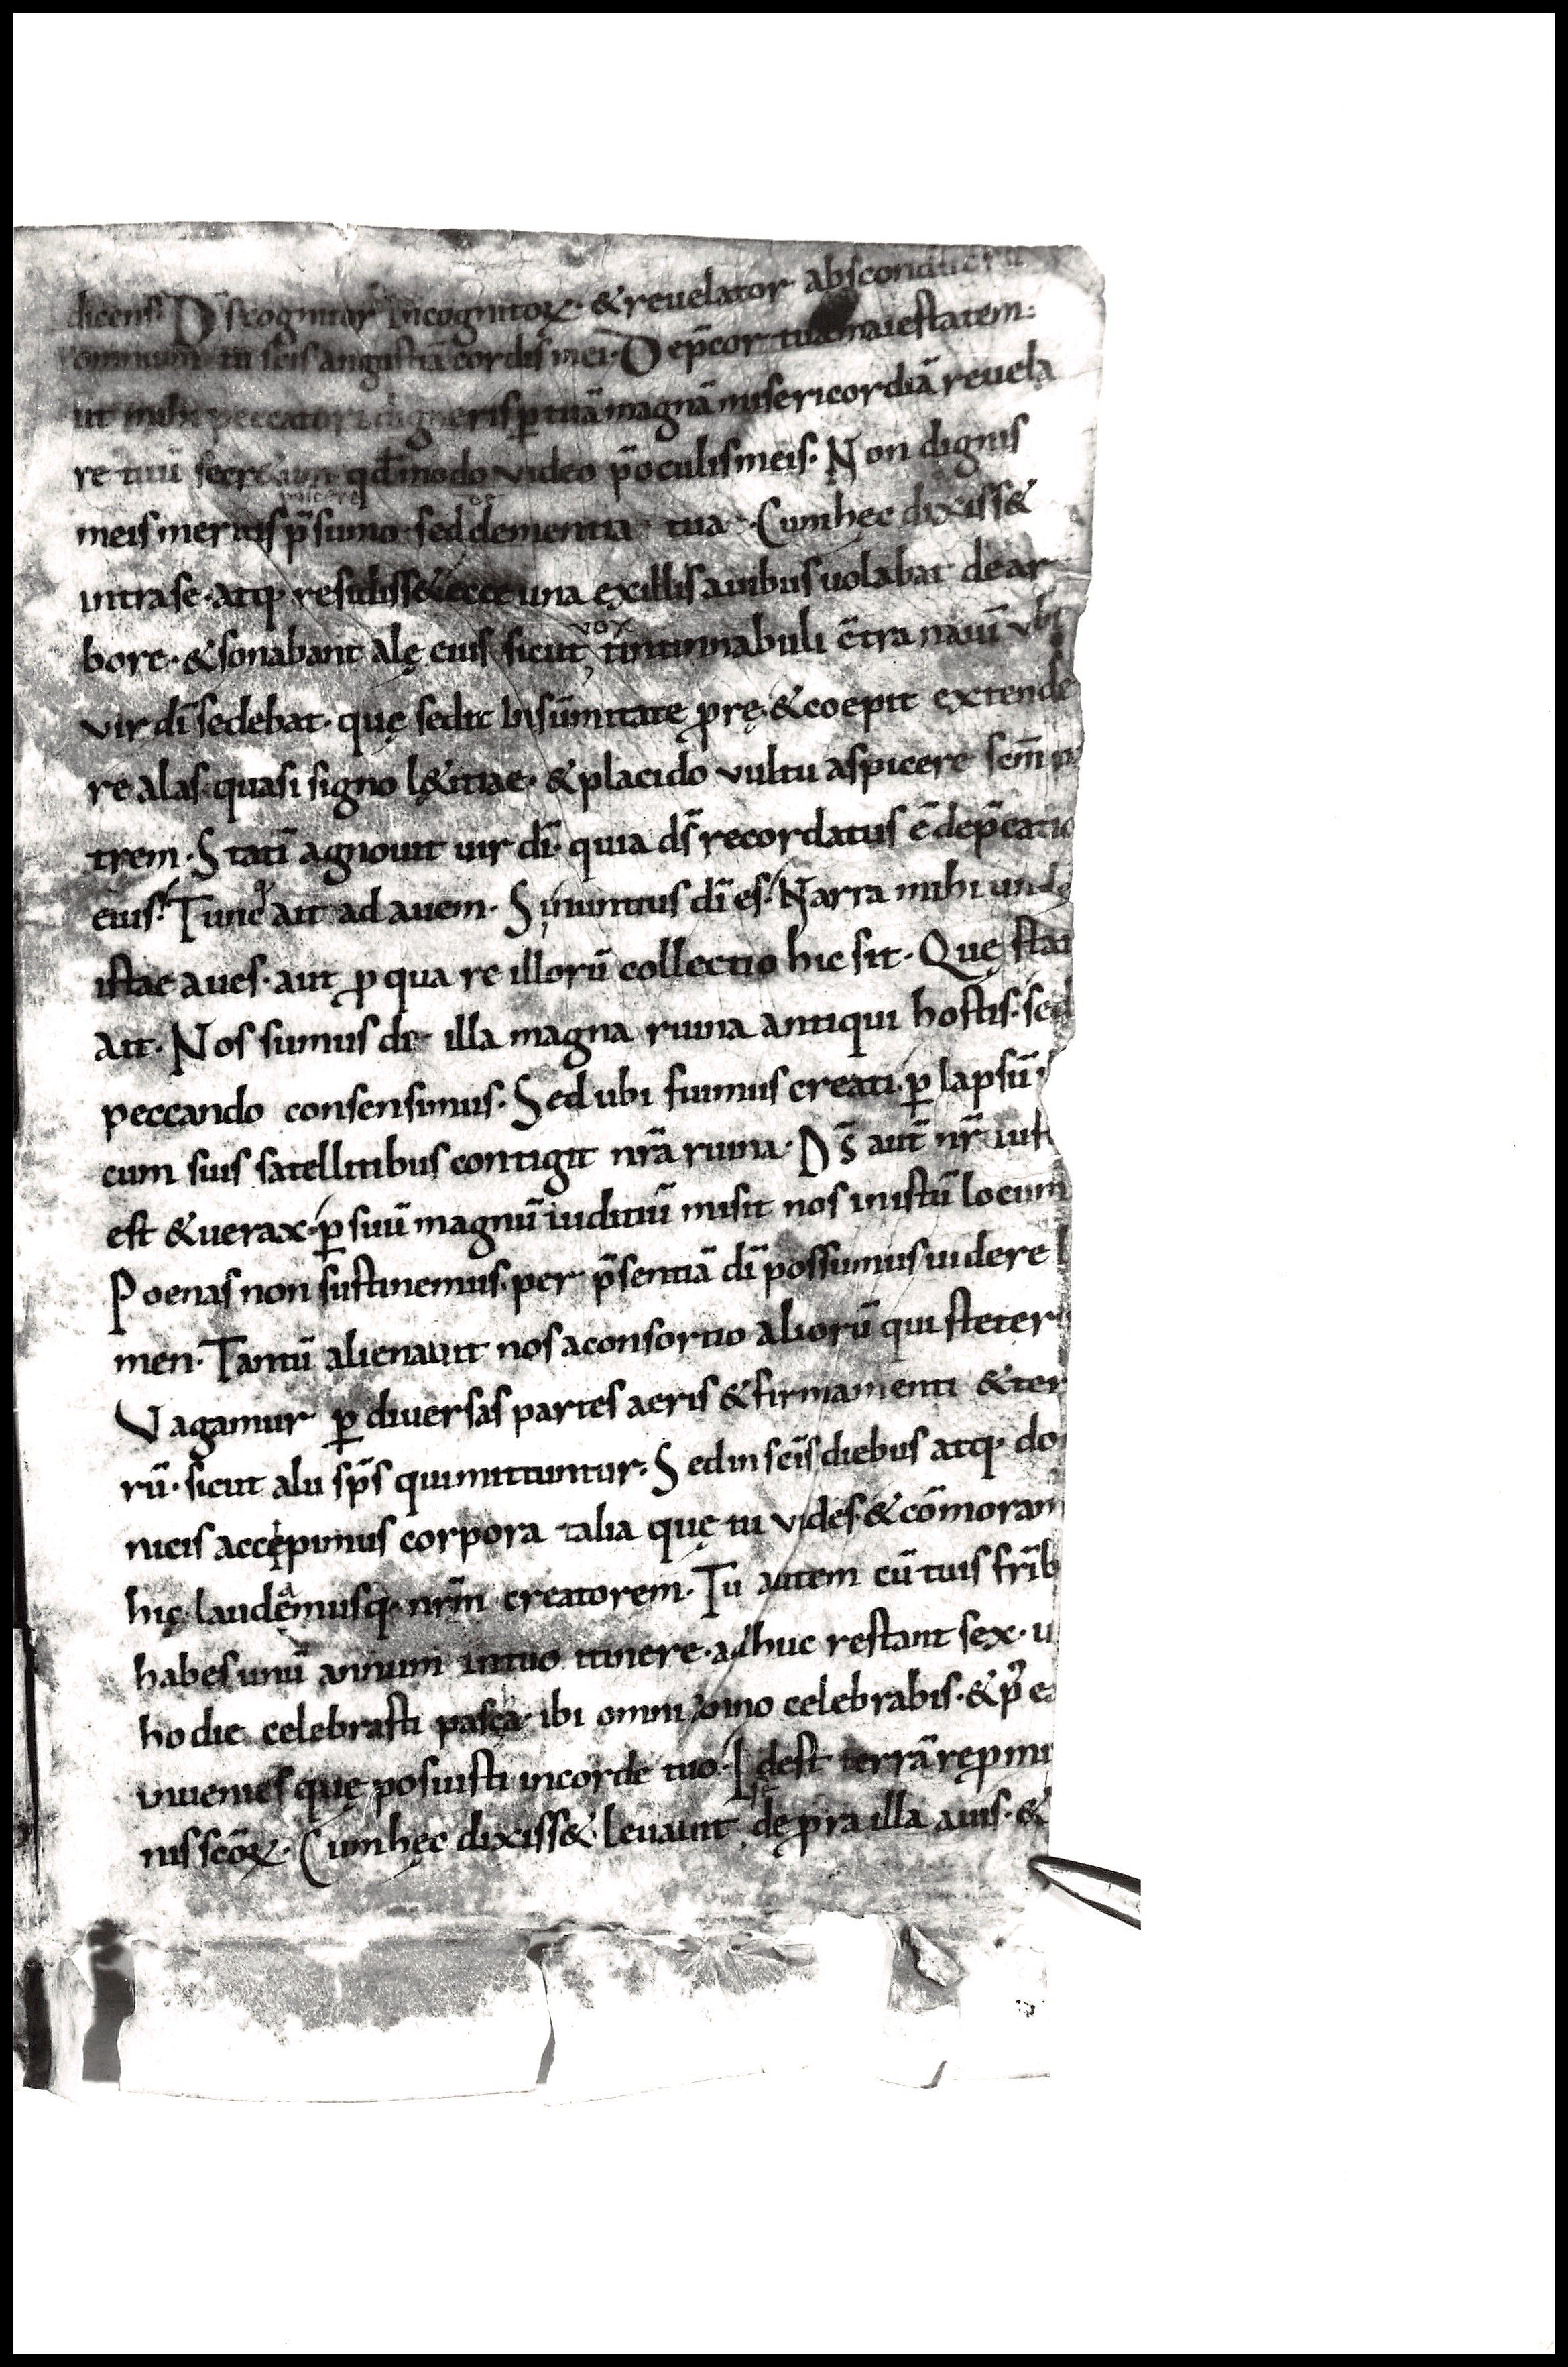 dicens. Ds cognitor incognitoꝝ· & reuelator absconditoru
omnium tu scis angustiā cordis mei· Dep̄cor tuā maiestatem·
ut mihi peccatori digneris ꝑ tuā magnā misericordiā reuela
re tuū secretum qđ modo video p̄ oculis meis· Non dignis
meis meritis p̄sumo· sed clementia tua· Cum hęc dixiss&
intra se· atq; resediss& ecce una ex illis auibus uolabat de ar
bore· & sonabant alę eius sicut vox tintinnabuli c̄tra nauī vbi
vir dī sedebat· quę sedit in sūmitate prę· & coepit extende
re alas quasi signo l&itiae· & placido vultu aspicere scm̄ pa
trem· Statī agnouit uir dī· quia ds̄ recordatus ē dep̄catio
eius· Tunc ait ad auem· Si nuntius dī es· Narra mihi unde
istae aues· aut ꝓ qua re illorū collectio hic sit· Quę stati
ait· Nos sumus de illa magna ruina antiqui hostis· sed
peccando consensimus· Sed ubi fuimus creati· ꝑ lapsū
cum suis satellitibus contigit nr̄a ruina· Ds̄ aut̄ nr̄ iust
est & uerax· ꝑ suū magnū iuditiū misit nos in istū locum
Poenas non sustinemus· per p̄sentiā dī possumus uidere l
men· Tantū alienauit nos a consortio aliorū qui steter
Vagamur ꝑ diuersas partes aeris & firmamenti & ter
rū· sicut alii sps̄ qui mittuntur· Sed in scīs diebus atq; do
nicis accepimus corpora talia quę tu vides· & cōmoram
hic laudamusq; nrm̄ creatorem· Tu autem cū tuis frīb
habes unū annum in tuo itinere· adhuc restant sex· u
hodie celebrasti pasca· ibi omni anno celebrabis· & p' ea
inuenies quę posuisti in corde tuo· Idest terrā repmi
nis scōꝝ· Cum hęc dixiss& leuauit se de pra illa auis· &